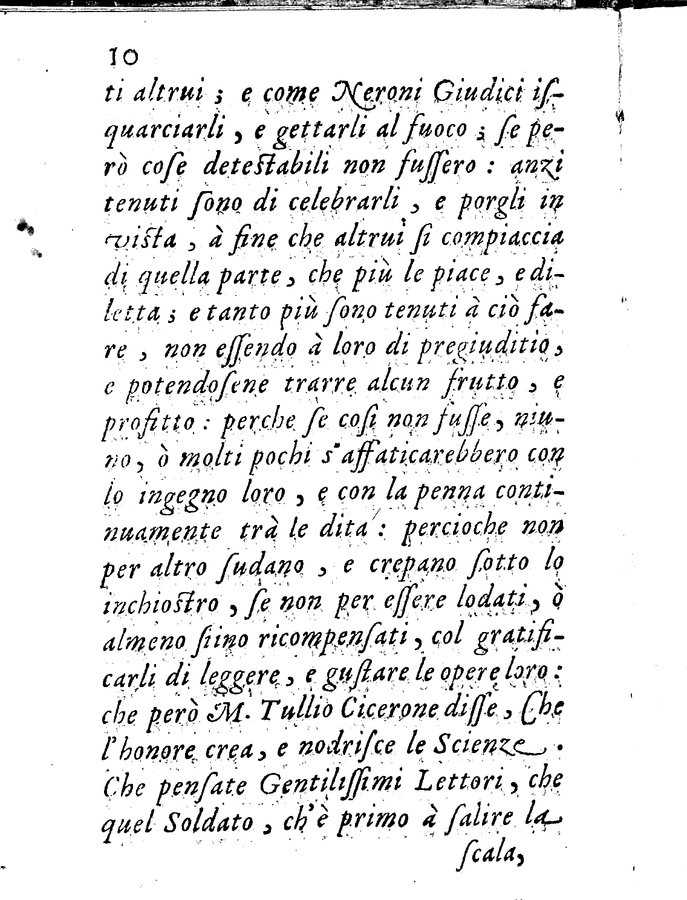 10
ti altrui ; e come Neroni Giudici iſ-
quarciarli , e gettarli al fuoco ; ſe pe-
rò coſe deteſtabili non fuſſero : anzi
tenuti ſono di celebrarli , e porgli in
viſta , à fine che altrui ſi compiaccia
di quella parte, che più le piace, e di-
letta ; e tanto più ſono tenuti à ciò fa-
re , non eſſendo à loro di pregiuditio,
e potendoſene trarre alcun frutto , e
profitto : perche ſe coſi non fuſſe, niu-
no, ò molti pochi s'affaticarebbero con
lo ingegno loro , e con la penna conti-
nuamente trà le dita : percioche non
per altro ſudano , e crepano ſotto lo
inchioſtro , ſe non per eſſere lodati, ò
almeno ſiino ricompenſati , col gratifi-
carli di leggere, e guſtare le opere loro :
che però M. Tullio Cicerone diſſe, Che
l'honore crea, e nodriſce le Scienze .
Che penſate Gentiliſſimi Lettori, che
quel Soldato , ch'è primo à ſalire la
ſcala,